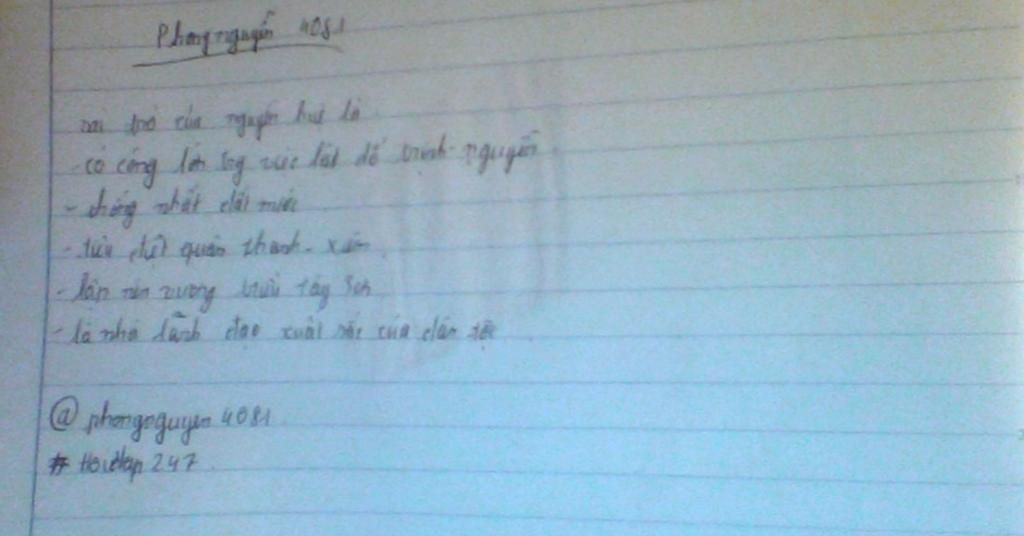 Phongnguyễn 4081
vai trò của nguyễn huệ là
- có công lớn tog việc lật đổ trịnh-nguyễn
- thống nhất đất nước
- tiêu diệt quân thanh - xiêm
- lập nên vương triều tây sơn
- là nhà lãnh đạo xuất sắc của dân tộc
@ phongnguyen 4081
# Hoidap 247